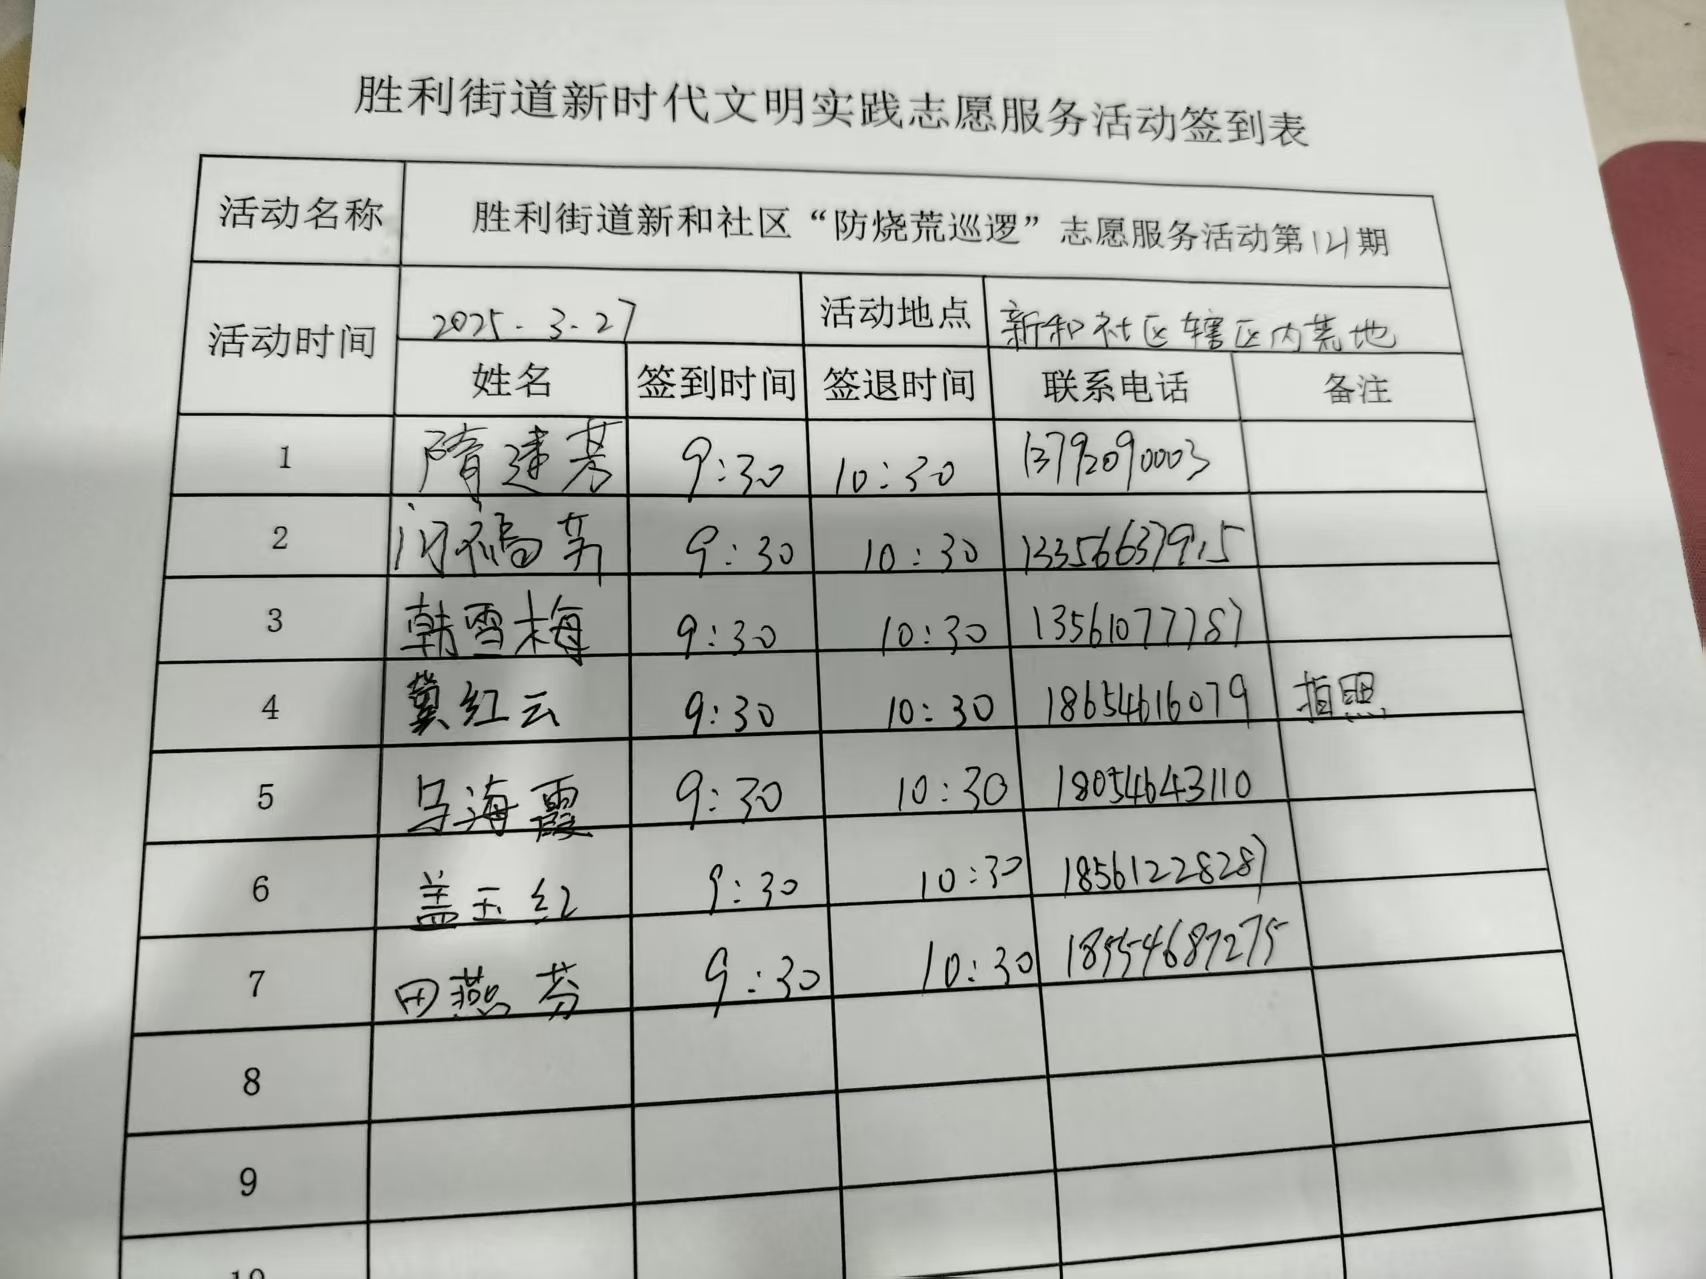 胜利街道新时代文明实践志愿服务活动签到表
活动名称 胜利街道新和社区“防烧荒巡逻”志愿服务活动第14期
活动时间 2025.3.27 活动地点 新和社区辖区内荒地
姓名 签到时间 签退时间 联系电话 备注
1 隋建芳 9:30 10:30 13792090003
2 闫福芳 9:30 10:30 13356637915
3 韩雪梅 9:30 10:30 13561077787
4 冀红云 9:30 10:30 18654616079 拍照
5 马海霞 9:30 10:30 18054643110
6 盖玉红 9:30 10:30 18561228287
7 田燕芬 9:30 10:30 18554687275
8
9
10